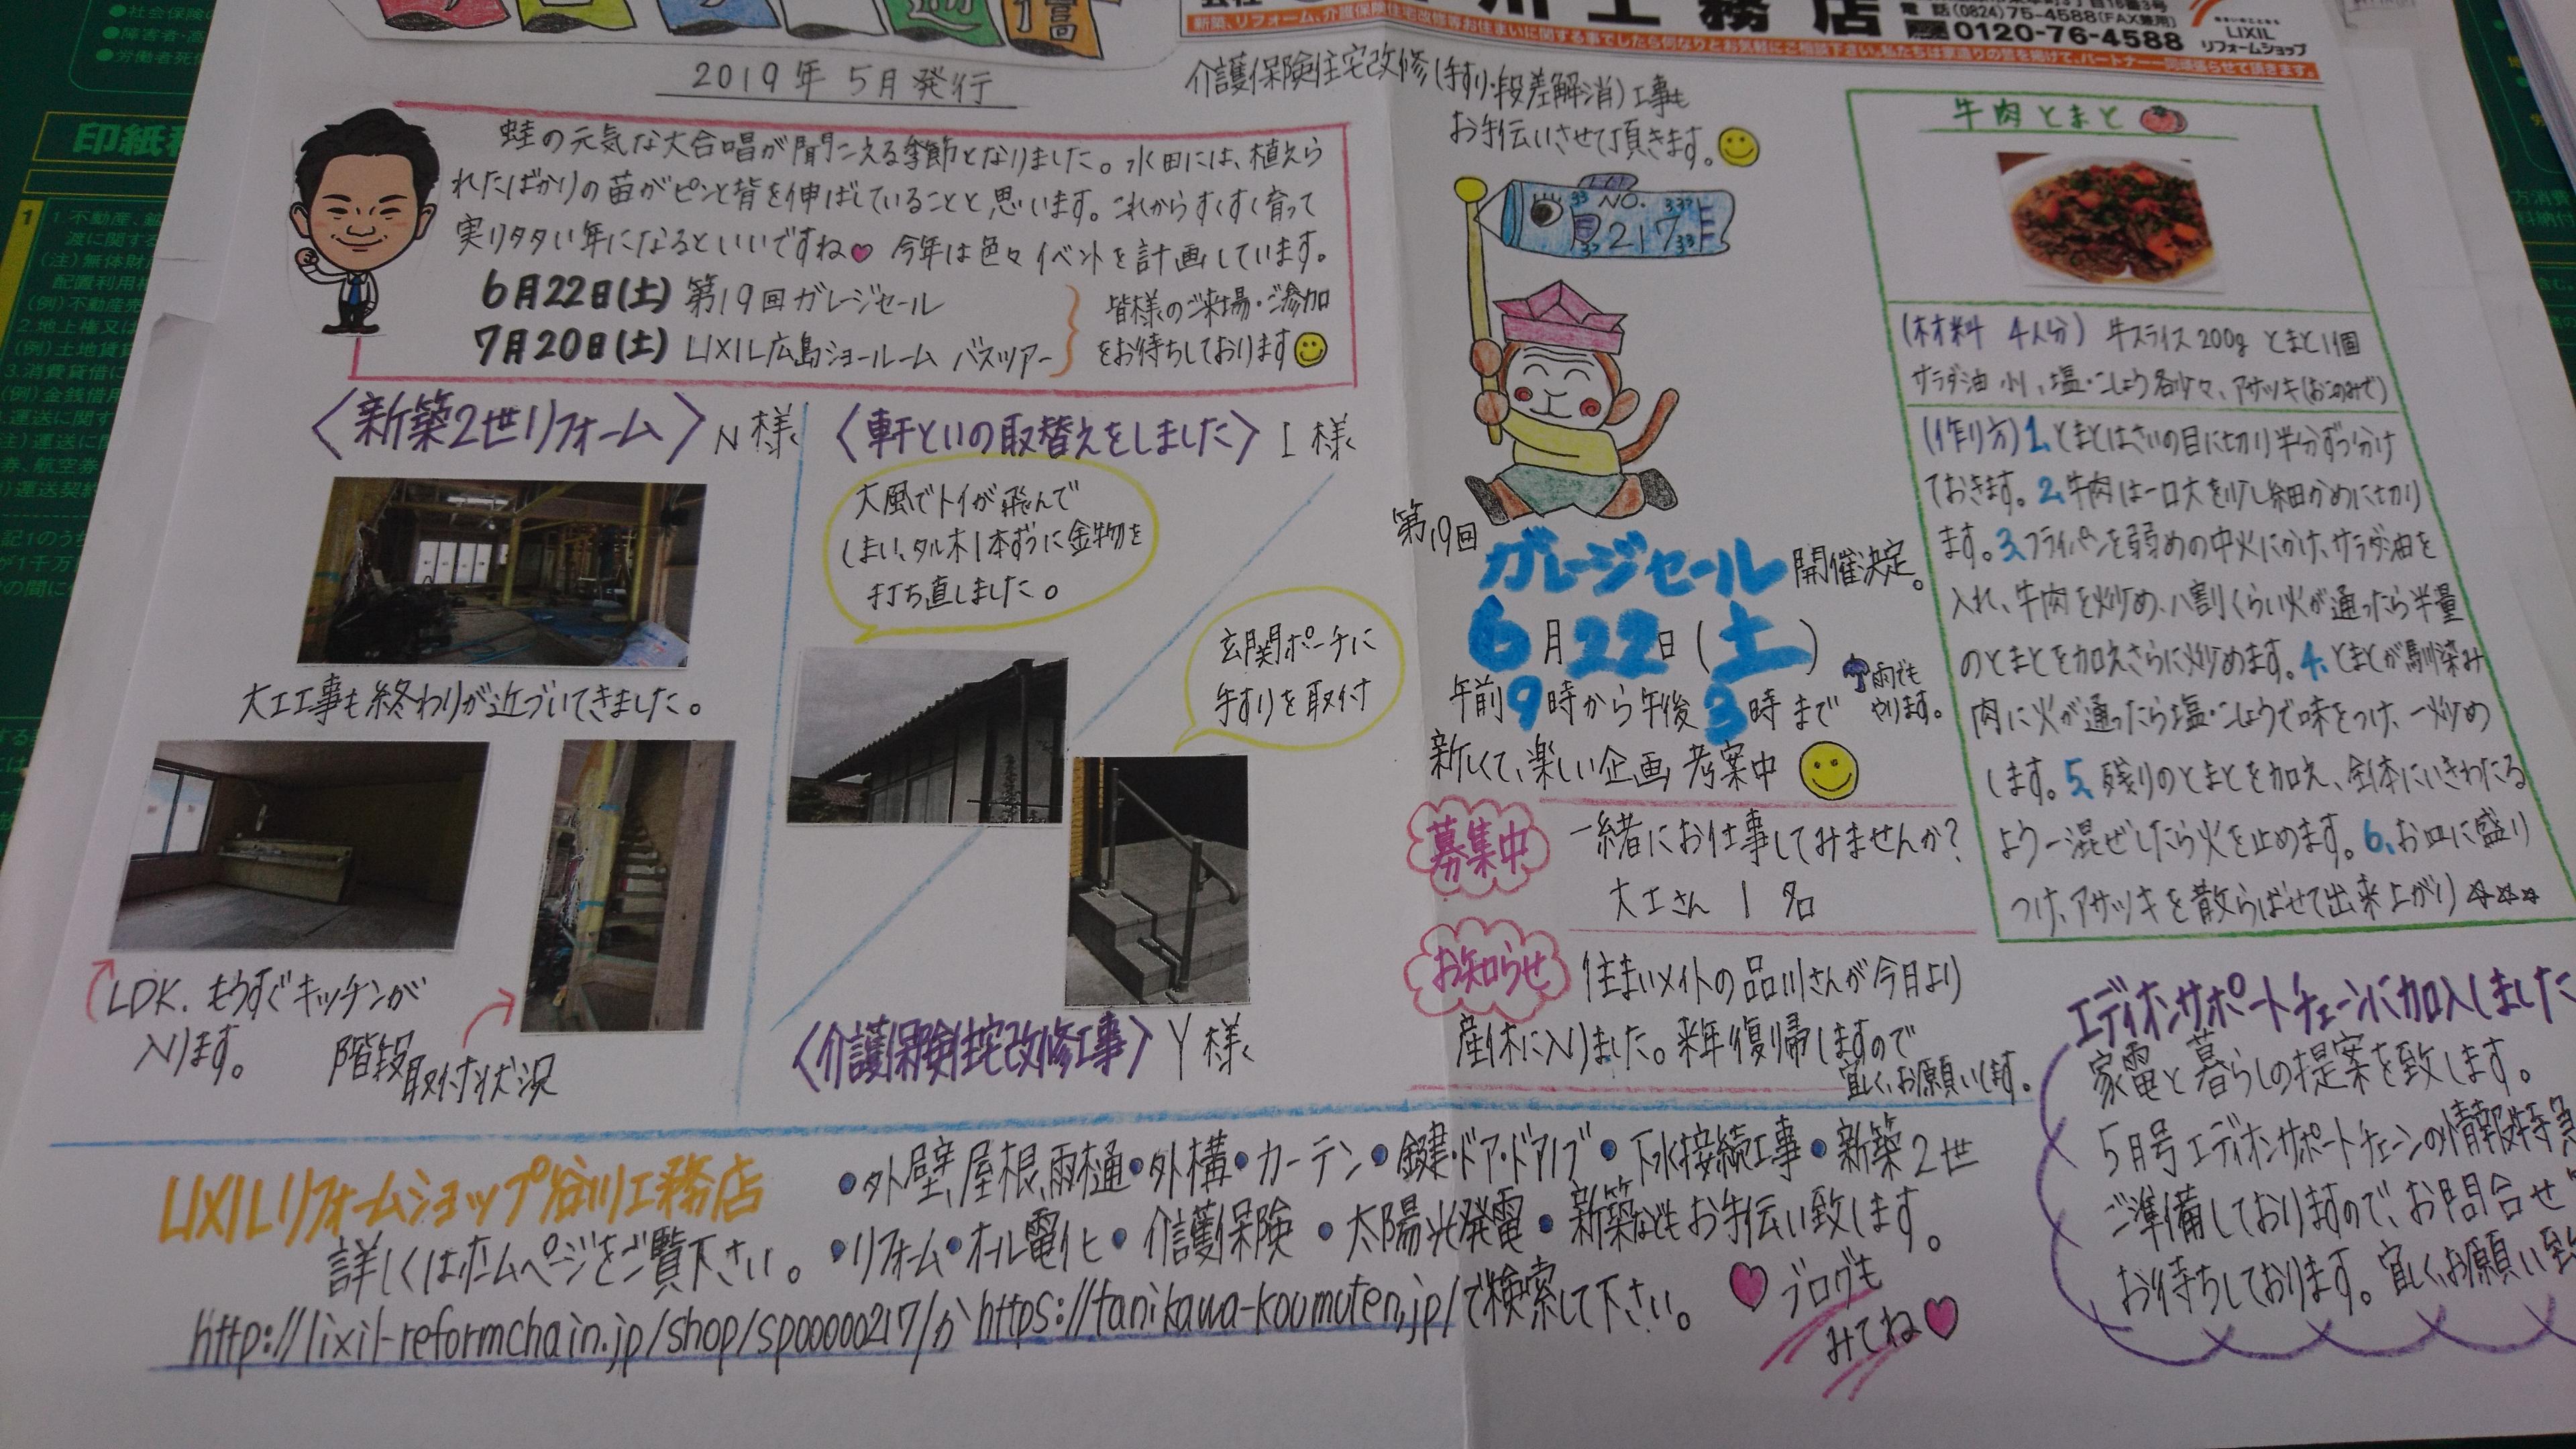 通信
工務店
電話(0824)75-4588(FAX兼用)
0120-76-4588
LIXIL
リフォームショップ
新築、リフォーム、介護保険住宅改修等お住まいに関する事でしたら何なりとお気軽にご相談下さい。私たちは家造りの誉を掲げて、パートナー一同頑張らせて頂きます。
2019年5月発行
蛙の元気な大合唱が聞こえる季節となりました。水田には、植えら
れたばかりの苗がピンと背を伸ばしていることと思います。これからすくすく育って
実り多い年になるといいですね 今年は色々イベントを計画しています。
6月22日(土) 第19回ガレージセール
7月20日(土) LIXIL広島ショールーム バスツアー
皆様のご来場・ご参加
をお待ちしております
〈新築2世リフォーム〉N様
大工工事も終わりが近づいてきました。
LDK. もうすぐキッチンが
入ります。
階段取付け状況
〈軒といの取替えをしました〉I様
大風でトイが飛んで
しまい、タル木1本ずつに金物を
打ち直しました。
玄関ポーチに
手すりを取付
〈介護保険住宅改修工事〉Y様
介護保険住宅改修(手すり・段差解消)工事も
お手伝いさせて頂きます。
NO.
217
第19回
ガレージセール開催決定。
6月22日(土)
午前9時から午後3時まで
雨でも
やります。
新しくて、楽しい企画 考案中
募集中
一緒にお仕事してみませんか?
大工さん 1名
お知らせ
住まいメイトの品川さんが今日より
産休に入りました。来年復帰しますので
宜しくお願いします。
牛肉とまと
(材料 4人分) 牛スライス200g とまと1個
サラダ油 小1、塩・こしょう各少々、アサツキ(お好みで)
(作り方)1.とまとはさいの目に切り半分ずつ分け
ておきます。2.牛肉は一口大を少し細かめに切り
ます。3.フライパンを弱めの中火にかけ、サラダ油を
入れ、牛肉を炒め、八割くらい火が通ったら半量
のとまとを加えさらに炒めます。4.とまとが馴染み
肉に火が通ったら塩・こしょうで味をつけ、一炒め
します。5.残りのとまとを加え、全体にいきわたる
よう一混ぜしたら火を止めます。6.お皿に盛り
つけ、アサツキを散らばせて出来上がり☆☆☆
エディオンサポートチェーンに加入しました
家電と暮らしの提案を致します。
5月号エディオンサポートチェーンの情報特急
ご準備しておりますので、お問合せ
お待ちしております。宜しくお願い致
LIXILリフォームショップ谷川工務店
詳しくはホームページをご覧下さい。
●外壁、屋根、雨樋●外構●カーテン●鍵・ドア・ドアノブ●下水接続工事●新築2世
●リフォーム●オール電化●介護保険●太陽光発電●新築などもお手伝い致します。
http://lixil-reformchain.jp/shop/sp00000217/か https://tanikawa-koumuten.jp/で検索して下さい。
ブログも
みてね